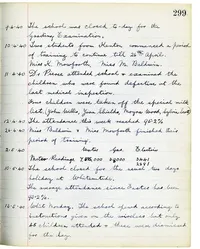 299
9-4-40 The school was closed to-day for the
Grading Examination.
10-4-40 Two students from Kenton commenced a period
of training to continue till 26th April.
Miss K. Monforth, Miss M. Baldwin.
11-4-40 Dr. Peirce attended school & examined the
children who were found defective at the
last medical inspection.
Nine children were taken off the special milk
list
12-4-40 The attendance this week reached 90.2%
26-4-40 Miss Baldwin & Miss Monforth finished their
period of training.
2-5-40 Water Gas Electric
Meter Readings
10-5-40 The school closed for the usual two days
holiday at Whitsuntide.
The average attendance since Easter has been
90.2%.
13-5-40 Whit Monday. The school opened according to
instructions given on the wireless but only
children attended & these were dismissed
for the day.